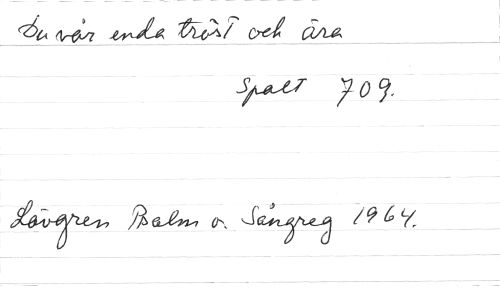 Du vår enda tröst och ära
Spalt 709.
Lövgren Psalm o. Sångreg 1964.